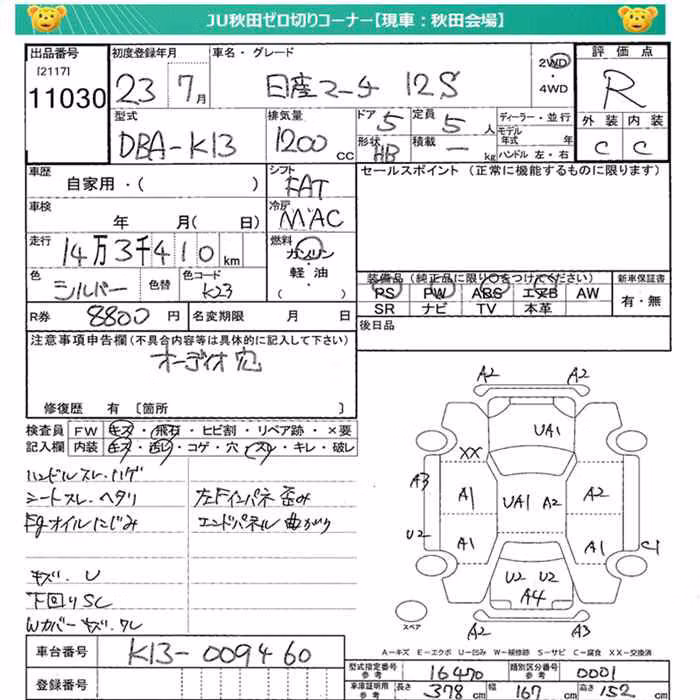 JU秋田ゼロ切りコーナー【現車：秋田会場】
出品番号 初度登録年月 車名・グレード 評価点
[2117]
11030 23 7月 日産マーチ 12S 2WD・4WD R
型式 排気量 ドア 定員 ディーラー・並行 外装 内装
DBA-K13 1200cc 5 5人 モデル年式 年 C C
形状 積載
HB — kg ハンドル 左・右
車歴 シフト セールスポイント（正常に機能するものに限ります）
自家用・( ) FAT
車検 冷房
年 月(日) MAC
走行 燃料
14万3千410km ガソリン・軽油・( )
色 色替 色コード 装備品（純正品に限り○をつけてください） 新車保証書
シルバー K23 PS PW ABS エアB AW 有・無
SR ナビ TV 本革
R券 8800円 名変期限 月 日 後日品
注意事項申告欄（不具合内容等は具体的に記入して下さい）
オーディオ穴
修復歴 有 [箇所 ]
検査員 FW キズ・飛石・ヒビ割・リペア跡・×要
記入欄 内装 キズ・汚レ・コゲ・穴・スレ・キレ・破レ
ハンドルスレ.ハゲ
シートスレ.ヘタリ 左Fインパネ歪み
Egオイルにじみ エンドパネル曲がり
キズ.U
下回りSC
Wカバーキズ.ワレ
A2 A2
UA1
XX
A3 A1 UA1 A2 A2
U2 A1 A1 C1
U2 U2
A4
スペア A2 A3
A－キズ E－エクボ U－凹み W－補修跡 S－サビ C－腐食 XX－交換済
車台番号 K13-009460
型式指定番号参考 16470 類別区分番号参考 0001
登録番号 車庫証明用参考 長さ 378cm 幅 167cm 高さ 152cm